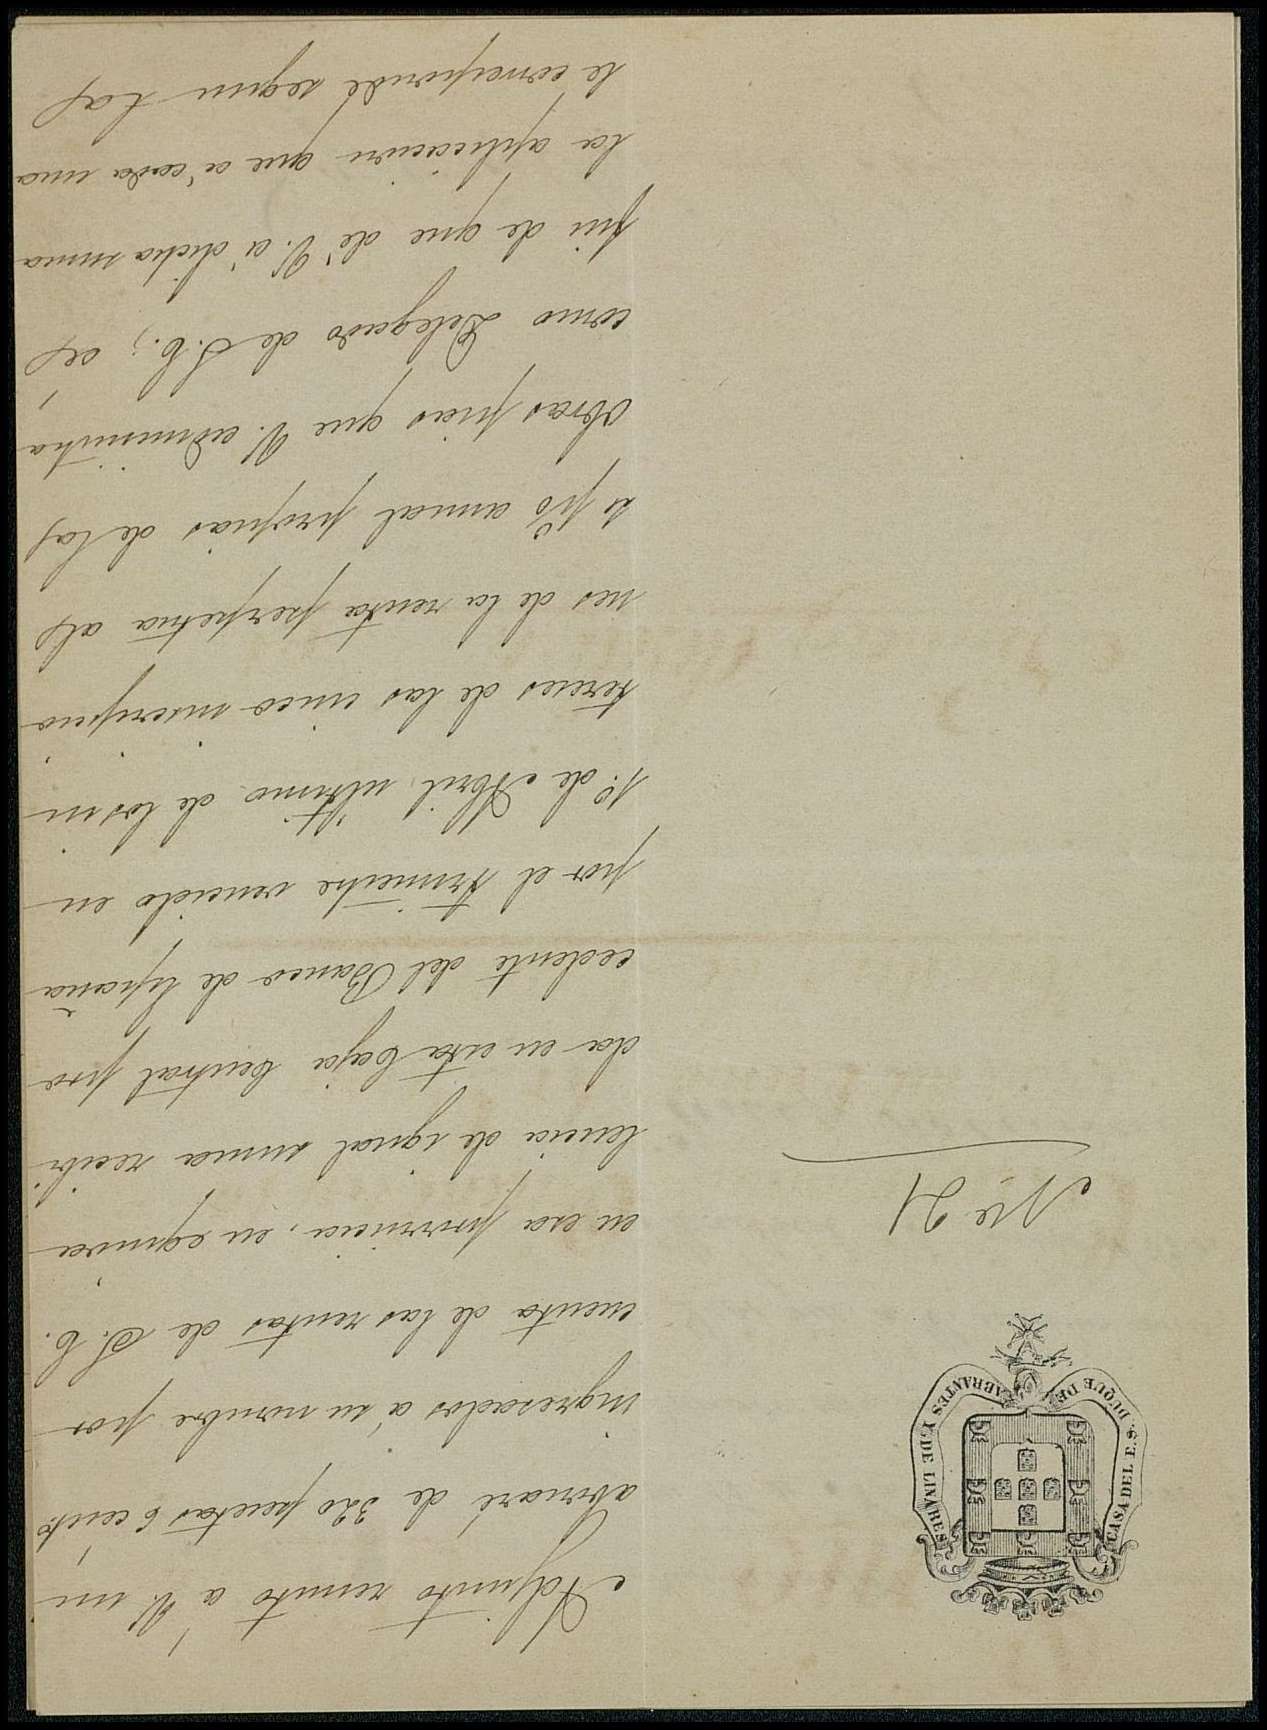 CASA DEL E.S. DUQUE DE ABRANTES Y DE LINARES
Nº 21
Adjunto remito á V. un
abonaré de 320 pesetas 6 cents
ingresados á su nombre por
cuenta de las rentas de S. E.
en esa provincia, en equiva
lencia de igual suma recibi
da en esta Caja Central pro
cedente del Banco de España
por el trimestre vencido en
1º de Abril último de los in
tereses de las cinco inscripcio
nes de la renta perpetua al
4 p% anual propias de las
obras pias que V. administra
como Delegado de S. E.; al
fin de que dé V. á dicha suma
la aplicación que á cada una
le corresponde segun las